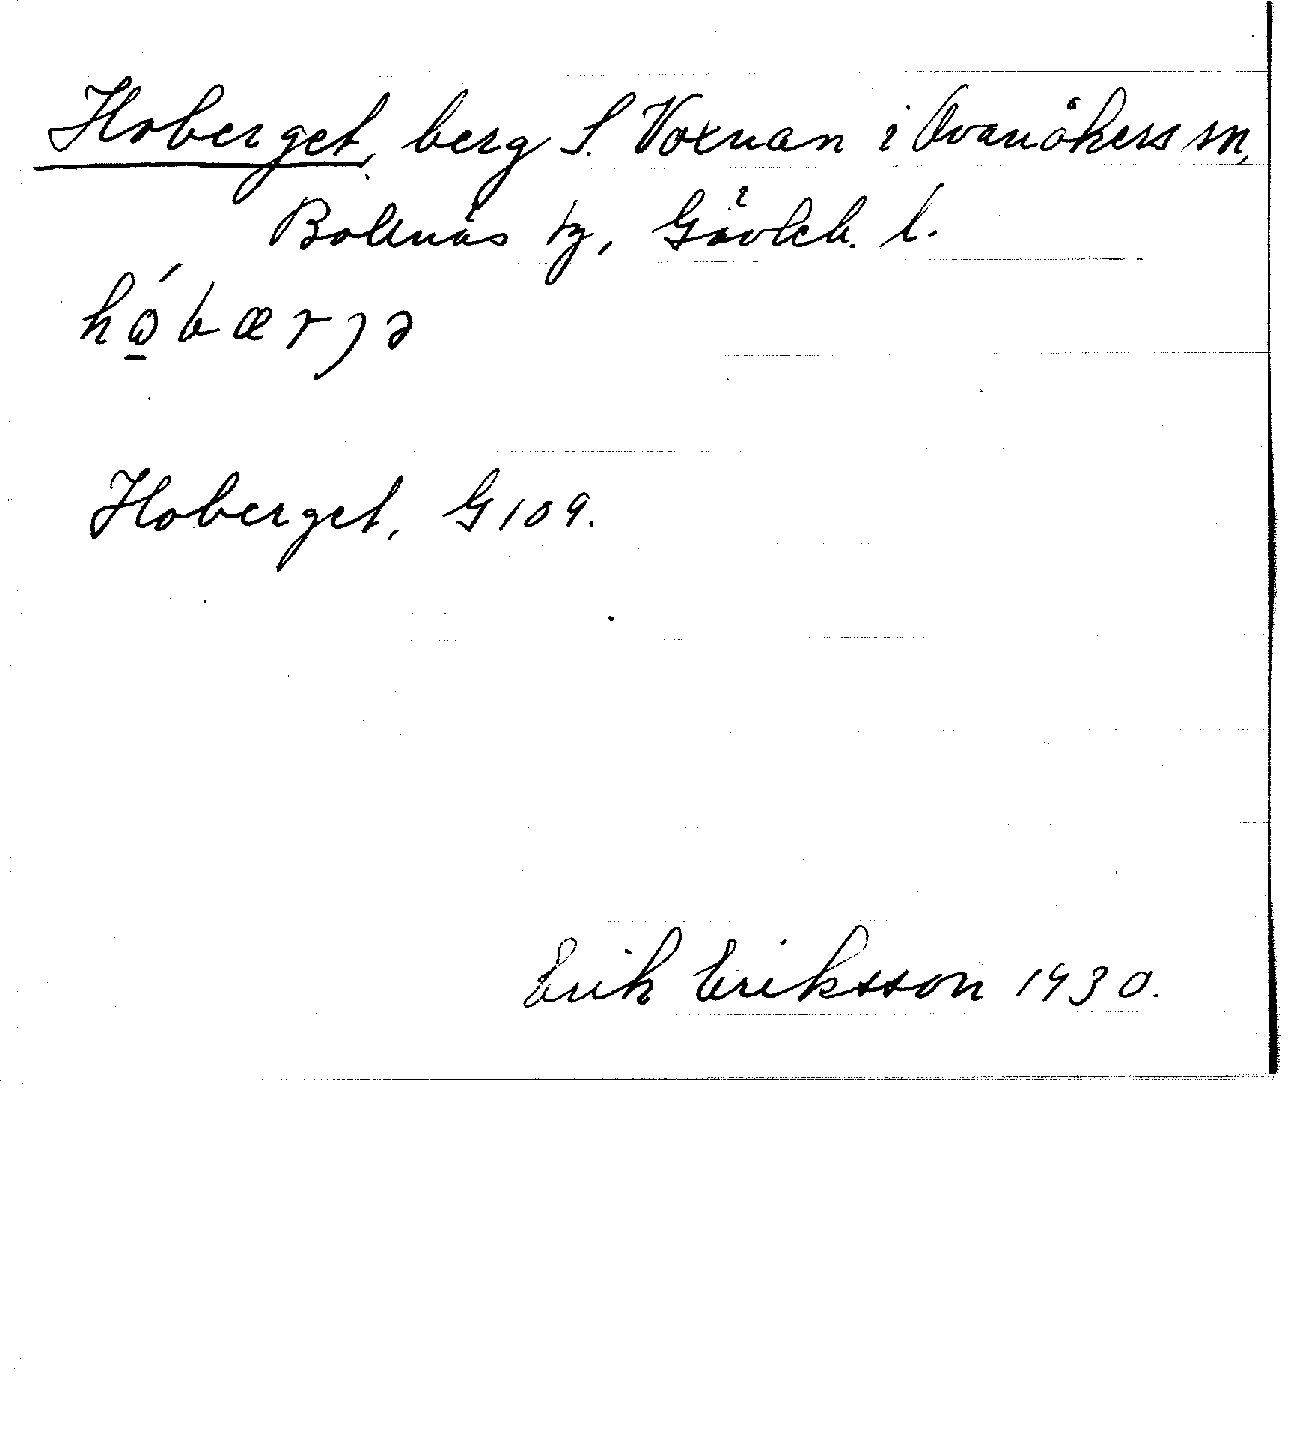 Hoberget, berg S. Voxnan i Ovanåkers sn,
Bollnäs tg, Gävleb. l.
hó̱bærjə
Hoberget, G 109.
Erik Eriksson 1930.